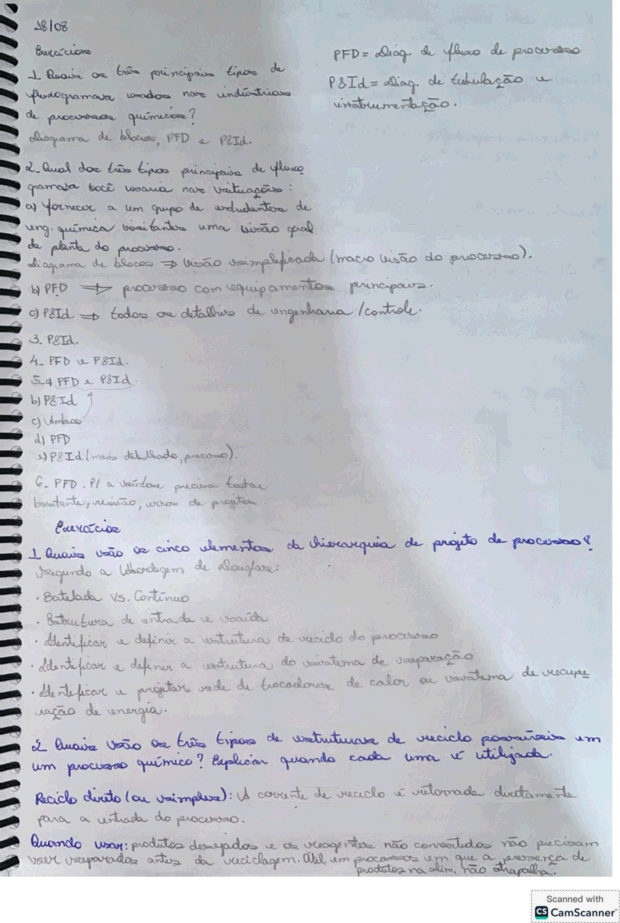 28/08
Exercícios
1. Quais os três principais tipos de
fluxogramas usados nas indústrias
de processos químicos?
diagrama de blocos, PFD e P&Id.
PFD = Diag. de fluxo de processo
P&Id = diag. de tubulação e
instrumentação.
2. Qual dos três tipos principais de fluxo
gramas você usaria nas situações:
a) fornecer a um grupo de estudantes de
eng. química visitantes uma visão geral
da planta do processo.
diagrama de blocos ⇒ visão simplificada (macro visão do processo).
b) PFD ⇒ processo com equipamentos principais.
c) P&Id ⇒ todos os detalhes de engenharia/controle.
3. P&Id.
4. PFD e P&Id.
5. a) PFD e P&Id.
b) P&Id
c) Ambos
d) PFD
e) P&Id (mais detalhado, processo).
6. PFD. P/ a síntese precisa testar
bastante, revisão, erros de projetos
Exercícios
1 Quais são os cinco elementos da hierarquia de projeto de processo?
Segundo a abordagem de Douglas:
• Batelada vs. Contínuo
• Estrutura de entrada e saída
• Identificar e definir a estrutura de reciclo do processo
• Identificar e definir a estrutura do sistema de separação
• Identificar e projetar rede de trocadores de calor ou sistema de recupe
ração de energia.
2 Quais são os três tipos de estruturas de reciclo possíveis em
um processo químico? Explicar quando cada uma é utilizada.
Reciclo direto (ou simples): A corrente de reciclo é retornada diretamente
para a entrada do processo.
Quando usar: produtos desejados e os reagentes não convertidos não precisam
ser separados antes da reciclagem. Útil em processos em que a presença de
produtos na alim. não atrapalha.
Scanned with
CS CamScanner